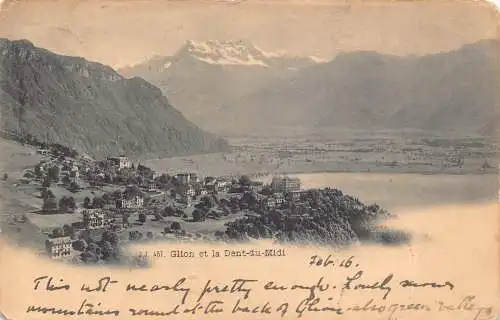 J.J. 457. Glion et la Dent-du-Midi
Feb. 16.
This not nearly pretty enough. Lovely snow
mountains round at the back of Glion, also green valley.